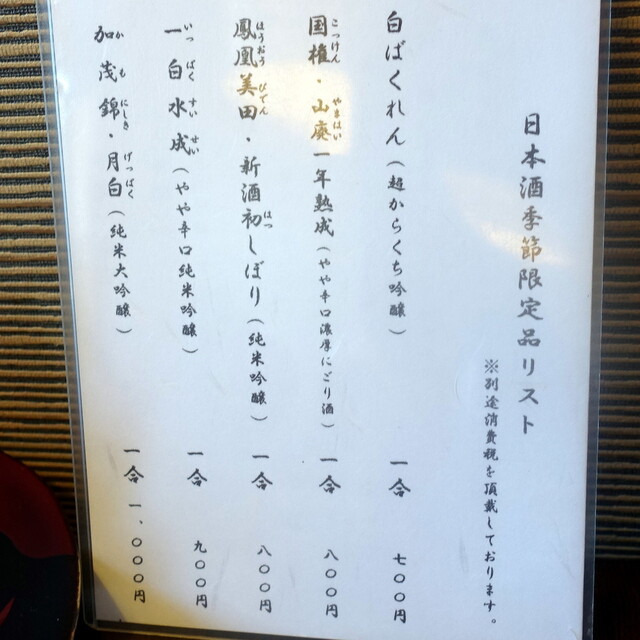 日本酒季節限定品リスト
※別途消費税を頂戴しております。
白ばくれん(超からくち吟醸) 一合 七〇〇円
国権・山廃一年熟成(やや辛口濃厚にごり酒) 一合 八〇〇円
こっけん やまはい
鳳凰美田・新酒初しぼり(純米吟醸) 一合 八〇〇円
ほうおう びでん はつ
一白水成(やや辛口純米吟醸) 一合 九〇〇円
いっ ぱく すい せい
加茂錦・月白(純米大吟醸) 一合 一、〇〇〇円
か も にしき げっぱく